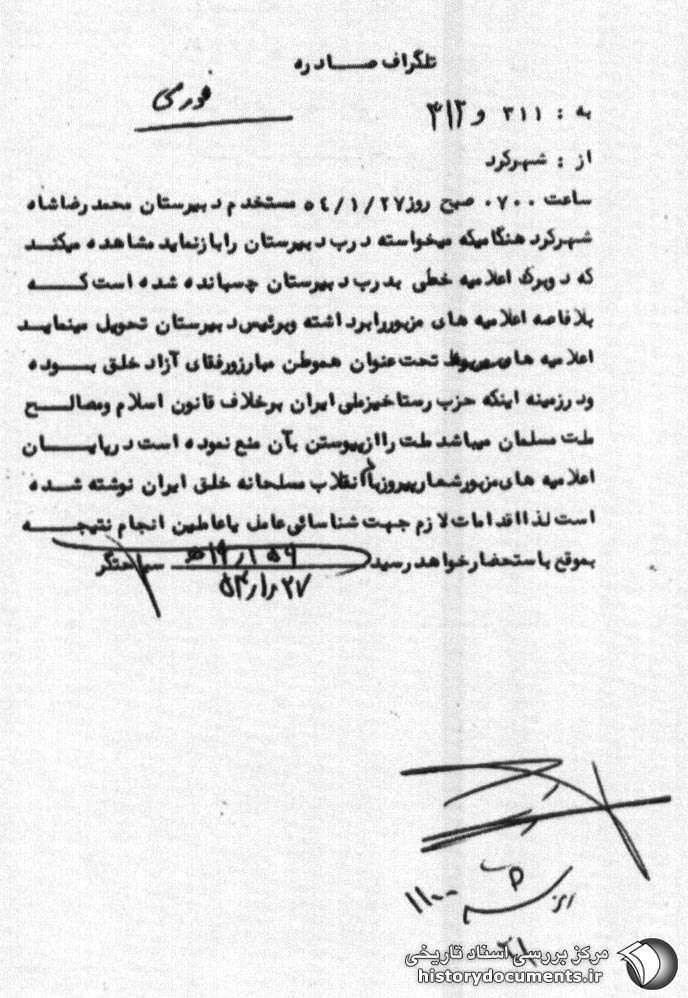 تلگراف صــــادره
فوری
به : ۳۱۱ و ۳۱۲
از : شهرکرد
ساعت ۰۷۰۰ صبح روز ۵٤/۱/۲۷ مستخدم دبیرستان محمدرضاشاه
شهرکرد هنگامیکه میخواسته درب دبیرستان را بازنماید مشاهده میکنــد
که دوبرگ اعلامیه خطی بدرب دبیرستان چسبانده شده است کـــه
بلافاصه اعلامیه های مزبوررا برداشته وبرئیس دبیرستان تحویل مینمایــد
اعلامیه های مربوط تحت عنوان هموطن مبارزورفقای آزاد خلق بـــوده
ودرزمینه اینکه حزب رستاخیزملی ایران برخلاف قانون اسلام ومصالــح
ملت مسلمان میباشد ملت را ازپیوستن بآن منع نموده است درپایــــان
اعلامیه های مزبورشعارپیروزباد انقلاب مسلحانه خلق ایران نوشته شــده
است لذا اقدامات لازم جهت شناسائی عامل یاعاملین انجام نتیجــه
بموقع باستحضارخواهد رسید سیاحتگر
۲۷ر۱ر۵۴
۱۱۰۰
مرکز بررسی اسناد تاریخی
historydocuments.ir